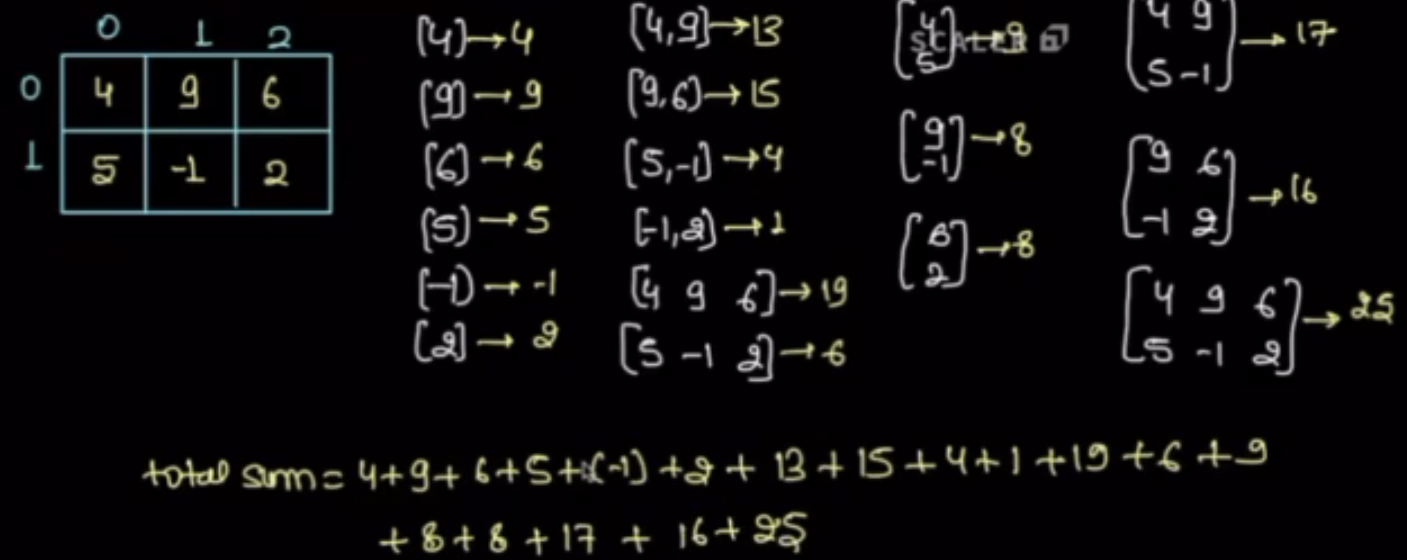 0 1 2
0 4 9 6
1 5 -1 2
[4] → 4
[9] → 9
[6] → 6
[5] → 5
[-1] → -1
[2] → 2
[4,9] → 13
[9,6] → 15
[5,-1] → 4
[-1,2] → 1
[4 9 6] → 19
[5 -1 2] → 6
[4
5] → 9
SCALER
[9
-1] → 8
[6
2] → 8
[4 9
5 -1] → 17
[9 6
-1 2] → 16
[4 9 6
5 -1 2] → 25
total sum = 4+9+6+5+(-1)+2+13+15+4+1+19+6+9
+8+8+17+16+25